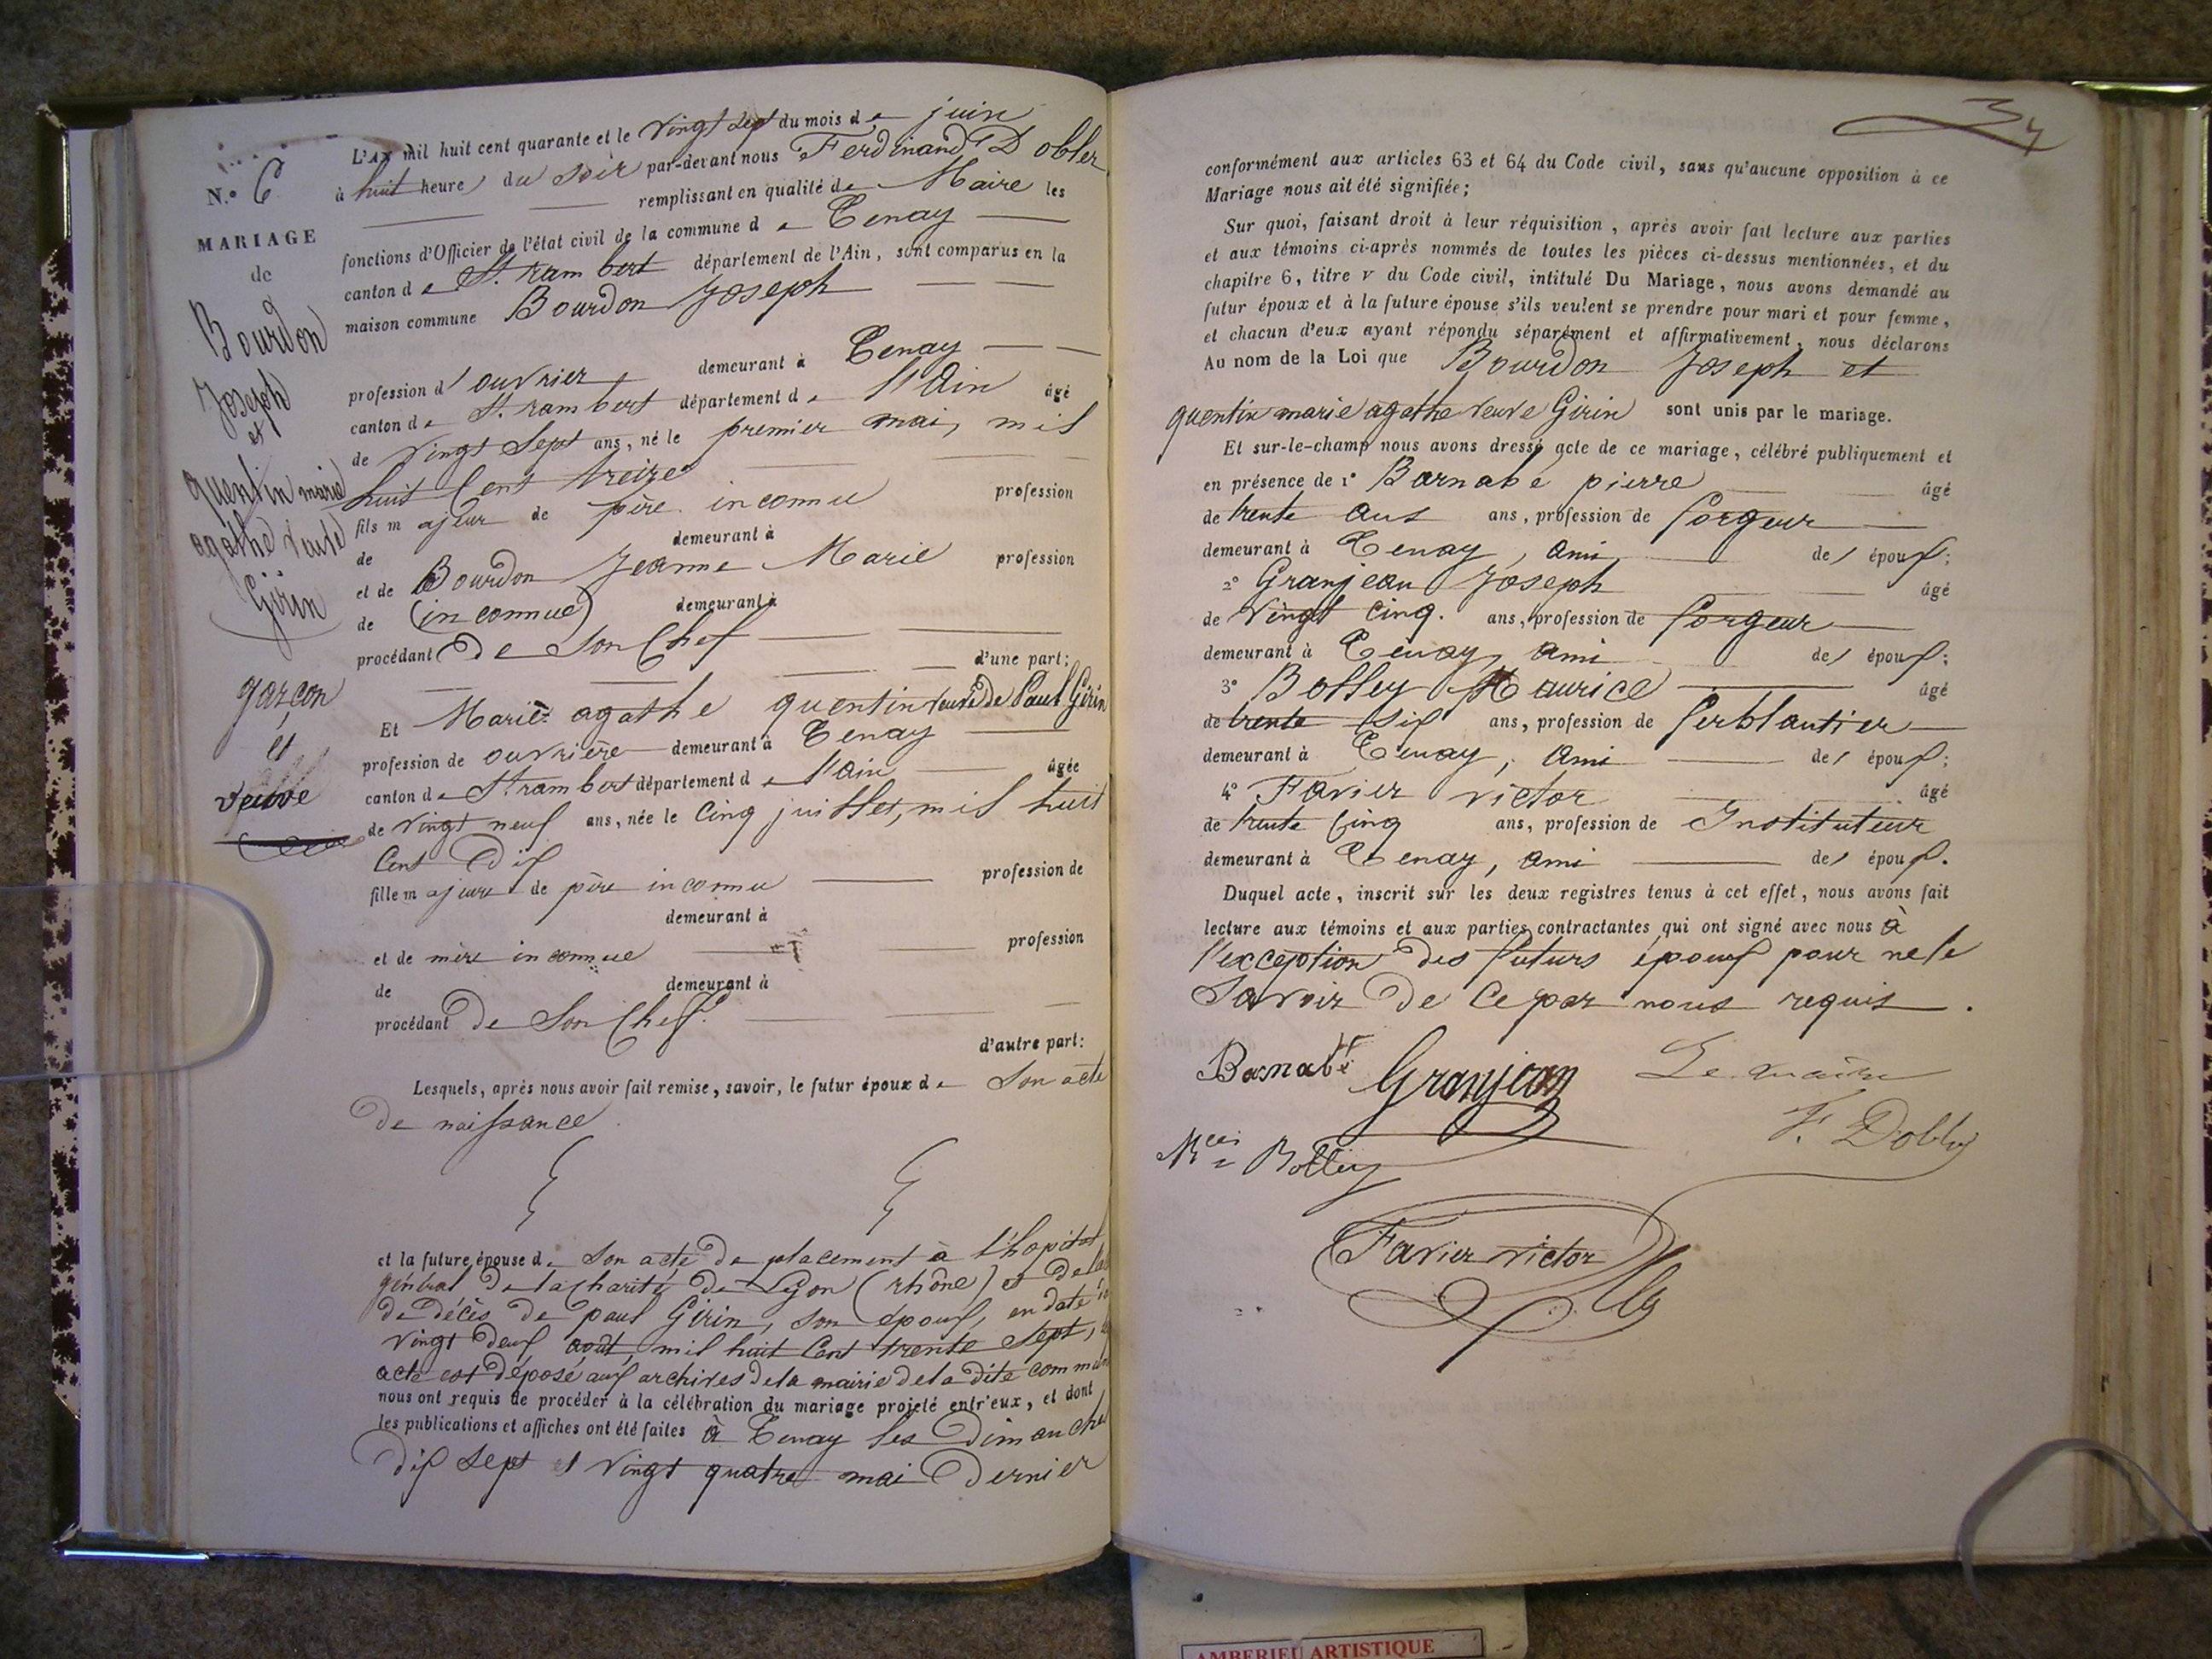 N.° 6
MARIAGE
de
Bourdon
Joseph
et
quentin marie
agathe veuve
Girin
garçon
et
veuve
L'AN mil huit cent quarante et le vingt sept du mois de juin
à huit heures du soir par-devant nous Ferdinand Dobler
remplissant en qualité de Maire les
fonctions d'Officier de l'état civil de la commune de Tenay
canton de St. rambert département de l'Ain, sont comparus en la
maison commune Bourdon Joseph
profession d'ouvrier demeurant à Tenay
canton de St. rambert département de l'Ain âgé
de vingt sept ans, né le premier mai, mil
huit Cent treize
fils majeur de père inconnu profession
de demeurant à
et de Bourdon Jeanne Marie profession
de (inconnue) demeurant à
procédant de Son Chef
d'une part;
Et Marie agathe quentin veuve de Paul Girin
profession de ouvrière demeurant à Tenay
canton de St rambert département de l'ain âgée
de vingt neuf ans, née le Cinq juillet, mil huit
Cent dix
fille majeure de père inconnu profession de
demeurant à
et de mère inconnue profession
de demeurant à
procédant de Son Chef.
d'autre part:
Lesquels, après nous avoir fait remise, savoir, le futur époux de Son acte
de naissance
et la future épouse de Son acte de placement à l'hopital
général de la charité de Lyon (rhône) et de
de décès de paul Girin, son époux, en date
vingt deux août, mil huit Cent trente Sept,
acte est déposé aux archives de la mairie de la dite
nous ont requis de procéder à la célébration du mariage projeté entr'eux, et dont
les publications et affiches ont été faites à Tenay les Dimanches
dix Sept et vingt quatre mai Dernier
34
conformément aux articles 63 et 64 du Code civil, sans qu'aucune opposition à ce
Mariage nous ait été signifiée;
Sur quoi, faisant droit à leur réquisition, après avoir fait lecture aux parties
et aux témoins ci-après nommés de toutes les pièces ci-dessus mentionnées, et du
chapitre 6, titre v du Code civil, intitulé Du Mariage, nous avons demandé au
futur époux et à la future épouse s'ils veulent se prendre pour mari et pour femme,
et chacun d'eux ayant répondu séparément et affirmativement, nous déclarons
Au nom de la Loi que Bourdon Joseph et
quentin marie agathe veuve Girin sont unis par le mariage.
Et sur-le-champ nous avons dressé acte de ce mariage, célébré publiquement et
en présence de 1° Barnabé pierre âgé
de trente ans ans, profession de forgeur
demeurant à Tenay, ami des époux;
2° Granjean Joseph âgé
de vingt cinq. ans, profession de forgeur
demeurant à Tenay, ami des époux;
3° Bolley Maurice âgé
de trente six ans, profession de ferblantier
demeurant à Tenay, ami des époux;
4° Favier victor âgé
de trente Cinq ans, profession de Instituteur
demeurant à Tenay, ami des époux.
Duquel acte, inscrit sur les deux registres tenus à cet effet, nous avons fait
lecture aux témoins et aux parties contractantes qui ont signé avec nous à
l'exception des futurs époux pour ne le
Savoir de Ce par nous requis.
Barnabé Granjean Le maire
F. Dobler
Mce Bolley
Favier victor
AMBERIEU ARTISTIQUE